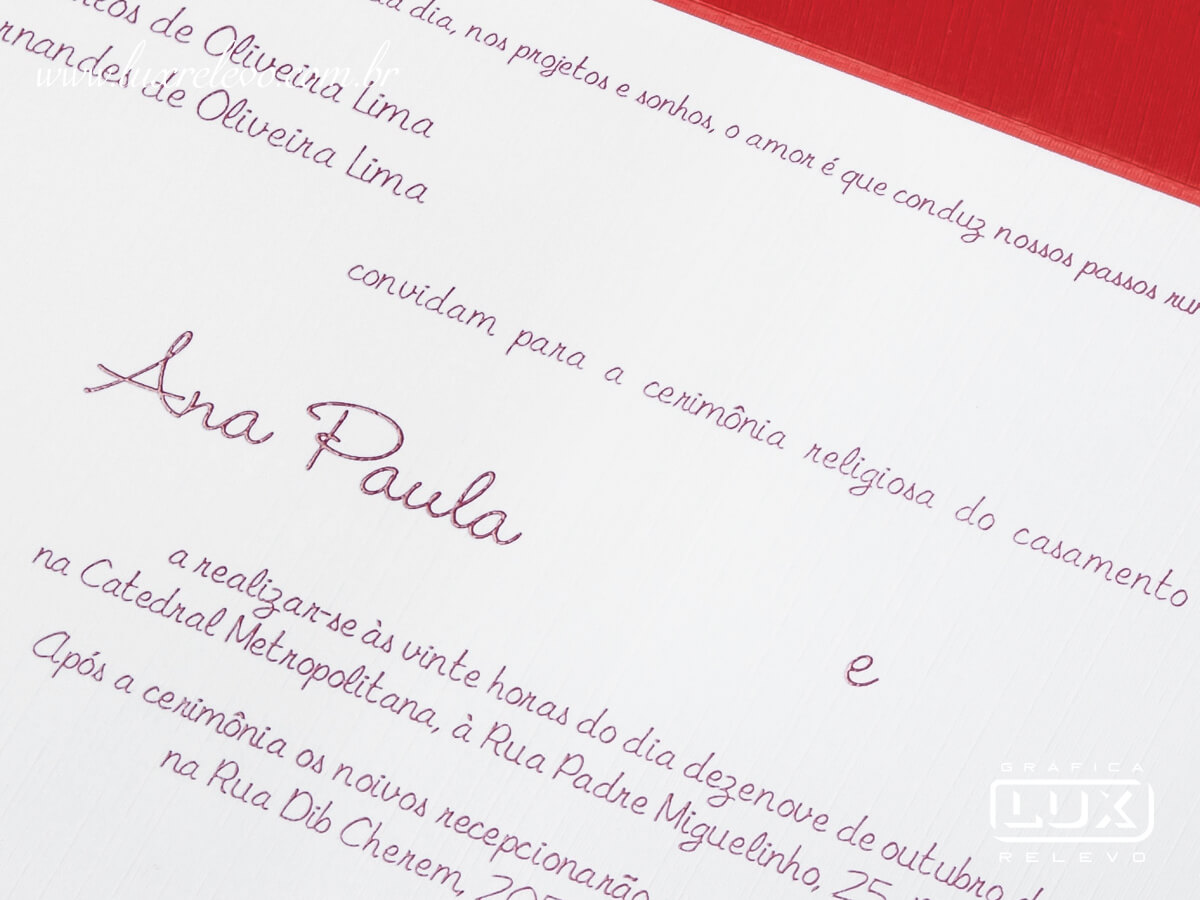 dia, nos projetos e sonhos, o amor é que conduz nossos passos
de Oliveira Lima
de Oliveira Lima
www.luxrelevo.com.br
convidam para a cerimônia religiosa do casamento
Ana Paula
e
a realizar-se às vinte horas do dia dezenove de outubro
na Catedral Metropolitana, à Rua Padre Miguelinho, 25
Após a cerimônia os noivos recepcionarão
na Rua Dib Cherem,
GRÁFICA
LUX
RELEVO